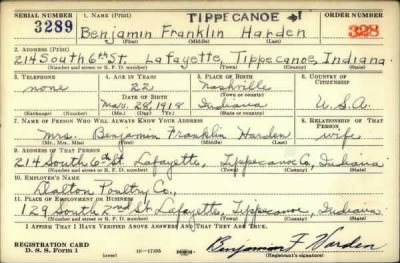 SERIAL NUMBER
1. NAME (Print)
TIPPECANOE →1
ORDER NUMBER
3289
Benjamin Franklin Harden
328
(First) (Middle) (Last)
2. ADDRESS (Print)
214 South 6th St. Lafayette, Tippecanoe, Indiana
(Number and street or R. F. D. number) (Town) (County) (State)
3. TELEPHONE
4. AGE IN YEARS
5. PLACE OF BIRTH
6. COUNTRY OF CITIZENSHIP
none
22
Nashville
DATE OF BIRTH
(Town or county)
Mar. 28, 1918
Indiana
U.S.A.
(Exchange) (Number)
(Mo.) (Day) (Yr.)
(State or country)
7. NAME OF PERSON WHO WILL ALWAYS KNOW YOUR ADDRESS
8. RELATIONSHIP OF THAT PERSON
Mrs. Benjamin Franklin Harden
wife
(Mr., Mrs., Miss) (First) (Middle) (Last)
9. ADDRESS OF THAT PERSON
214 South 6th St. Lafayette, Tippecanoe Co, Indiana
(Number and street or R. F. D. number) (Town) (County) (State)
10. EMPLOYER'S NAME
Dalton Poultry Co.,
11. PLACE OF EMPLOYMENT OR BUSINESS
129 South 2nd St. Lafayette, Tippecanoe, Indiana
(Number and street or R. F. D. number) (Town) (County) (State)
I AFFIRM THAT I HAVE VERIFIED ABOVE ANSWERS AND THAT THEY ARE TRUE.
REGISTRATION CARD
D. S. S. Form 1
(over)
16—17105
Benjamin F Harden
(Registrant's signature)